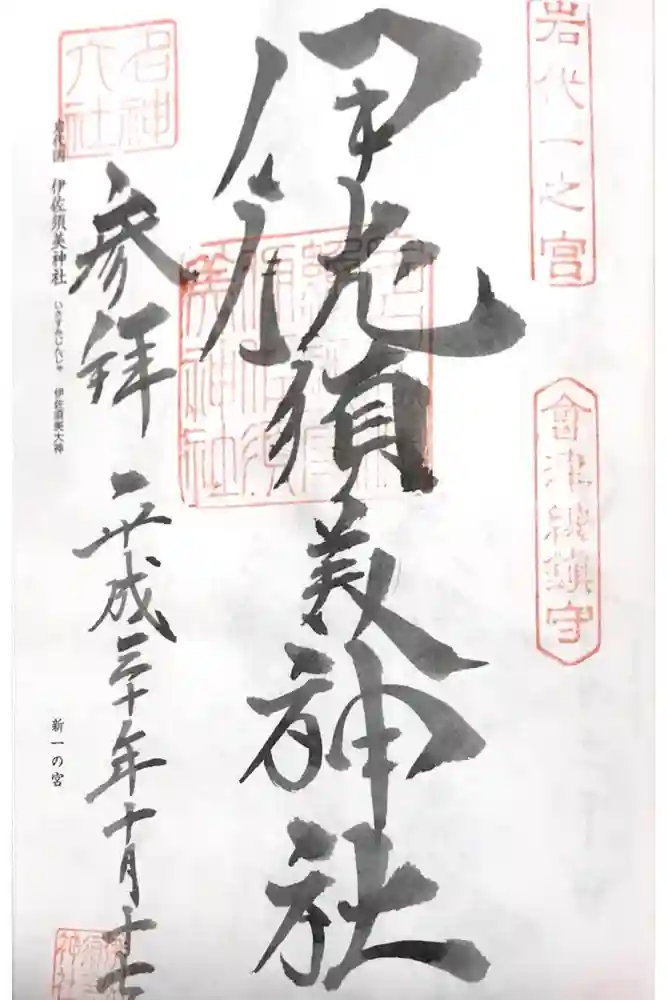 岩代一之宮
會津総鎮守
伊佐須美神社
参拝
平成三十年十月十七
名神
大社
岩代国 伊佐須美神社 いさすみじんじゃ 伊佐須美大神
新一の宮